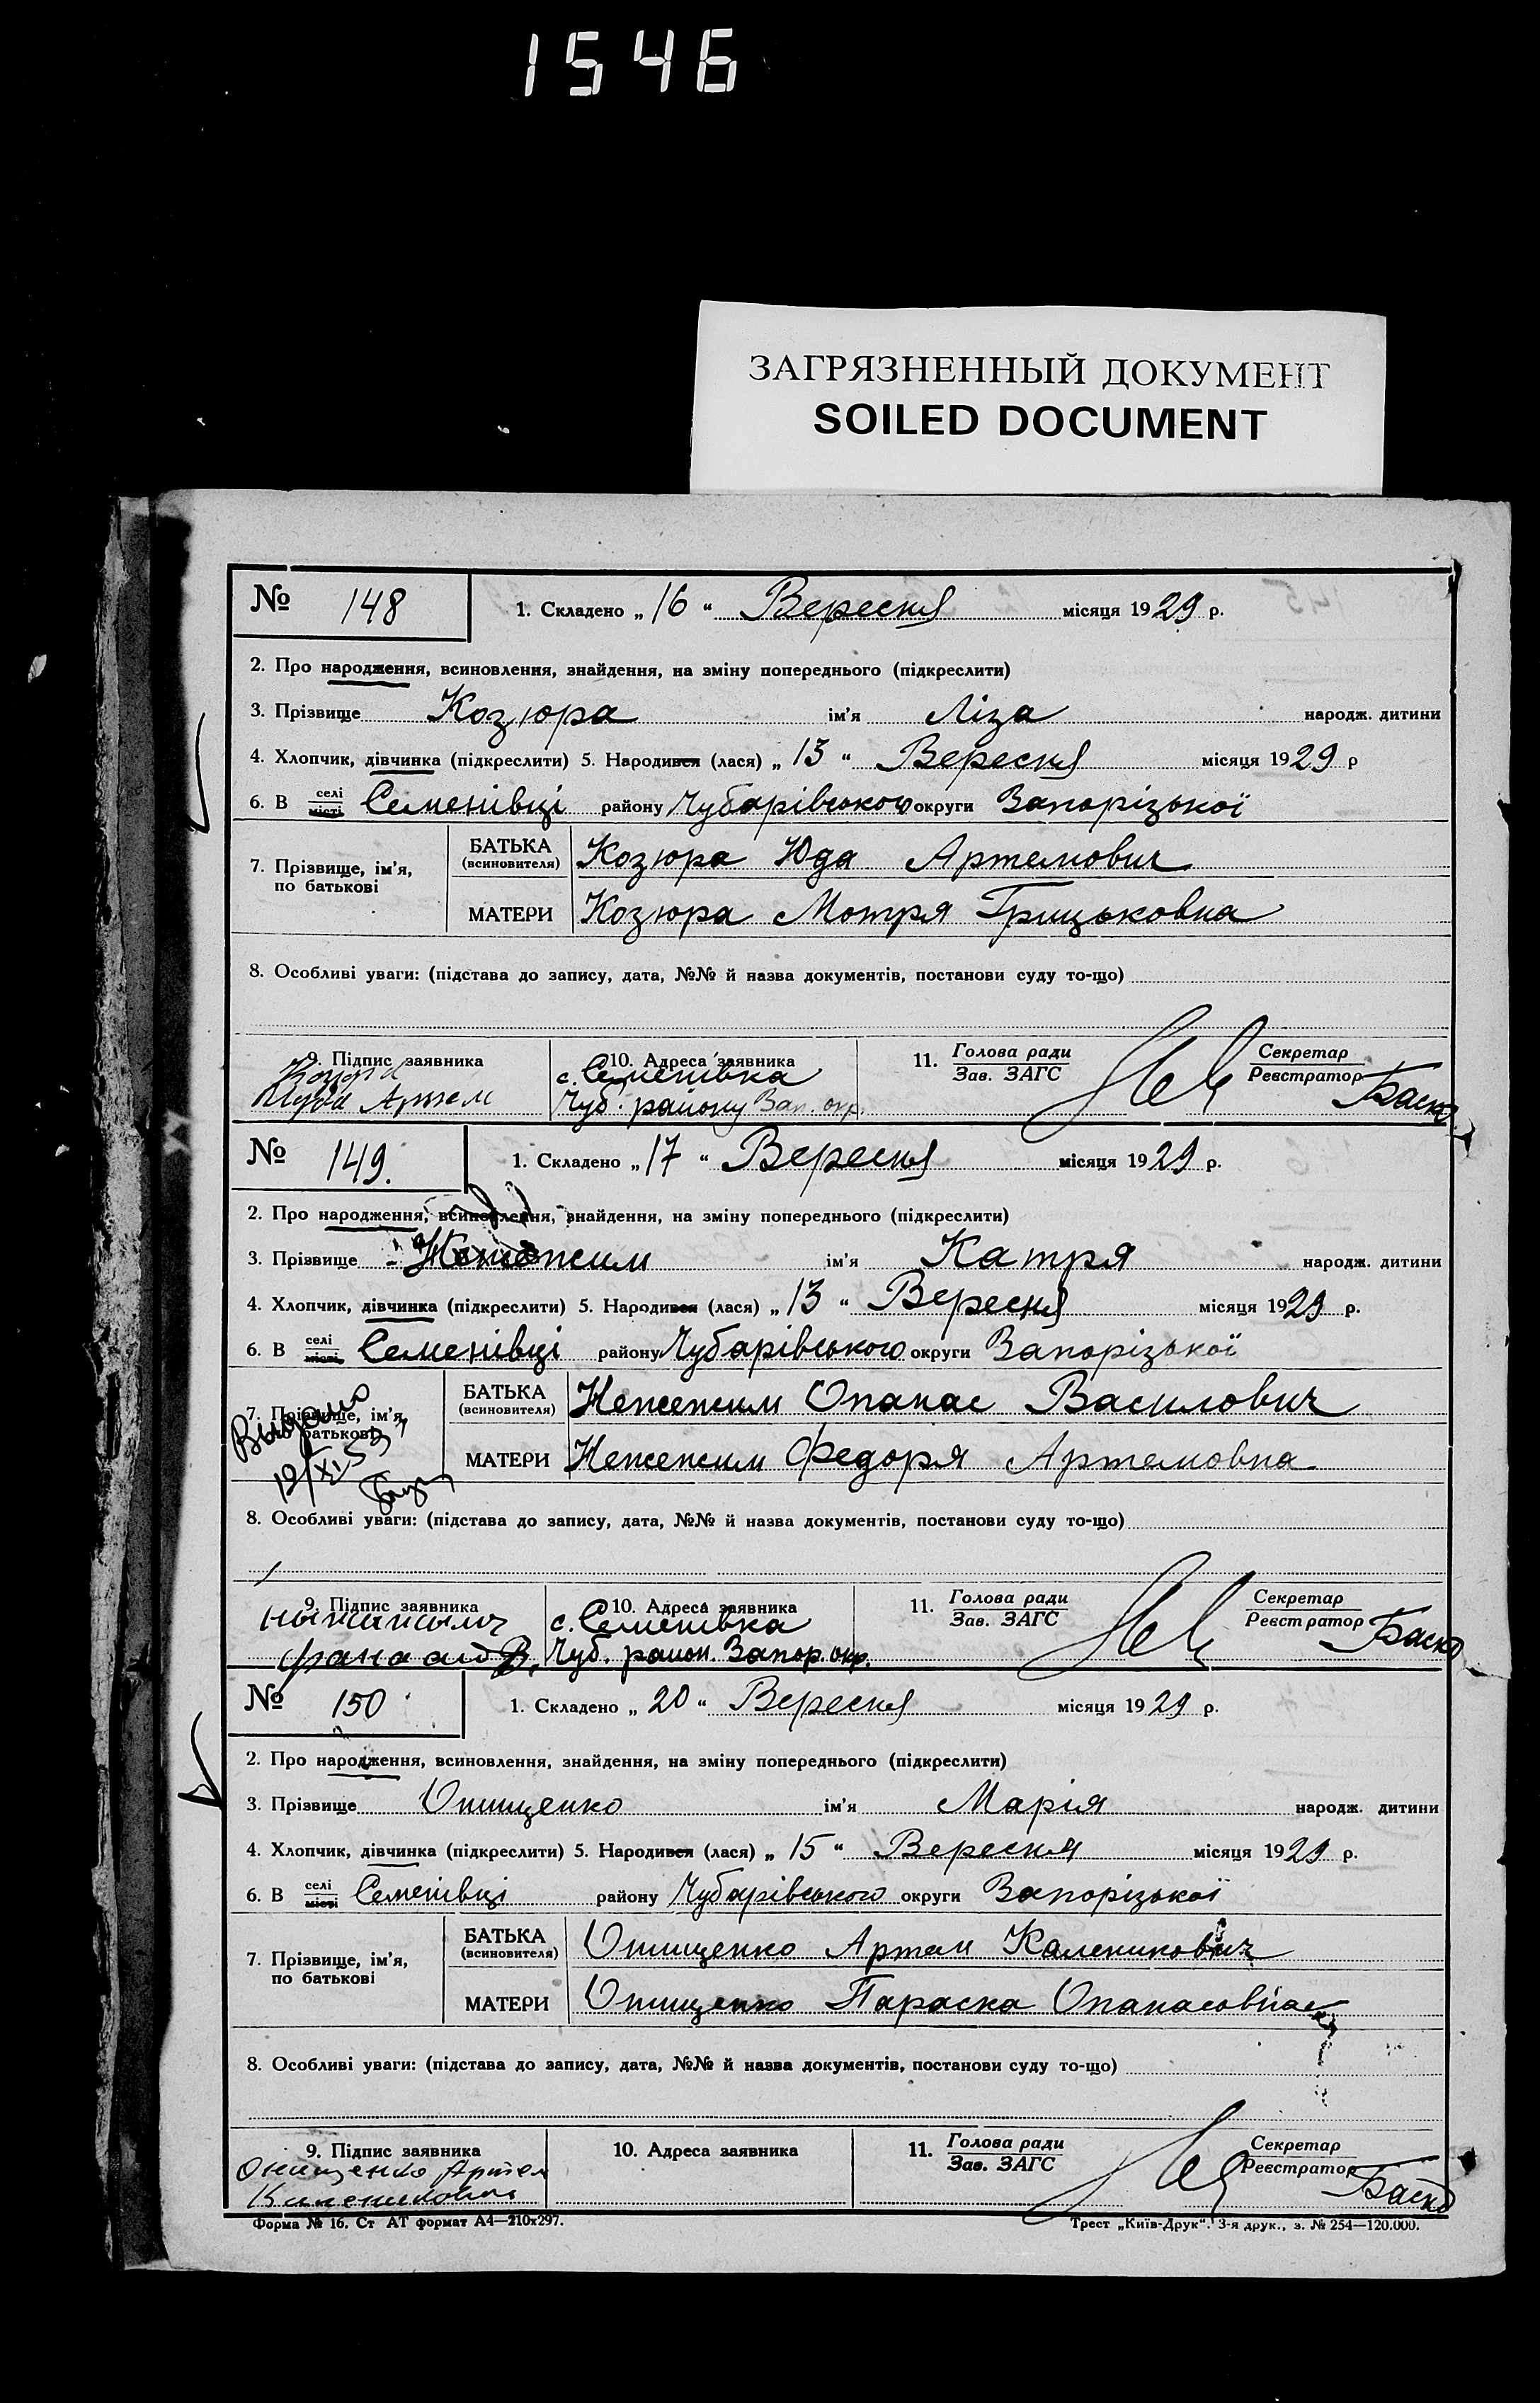 1546
ЗАГРЯЗНЕННЫЙ ДОКУМЕНТ
SOILED DOCUMENT
№ 148 1. Складено „16“ Вересня місяця 1929 р.
2. Про народження, всиновлення, знайдення, на зміну попереднього (підкреслити)
3. Прізвище Козюра ім'я Ліза народж. дитини
4. Хлопчик, дівчинка (підкреслити) 5. Народився (лася) „13“ Вересня місяця 1929 р
6. В селі місті Семенівці району Чубарівського округи Запорізької
7. Прізвище, ім'я, по батькові
БАТЬКА (всиновителя) Козюра Юда Артемович
МАТЕРИ Козюра Мотря Грицьковна
8. Особливі уваги: (підстава до запису, дата, №№ й назва документів, постанови суду то-що)
9. Підпис заявника 10. Адреса заявника 11. Голова ради Зав. ЗАГС Секретар Реєстратор
с. Семенівка
Чуб. району Зап. окр.
№ 149. 1. Складено „17“ Вересня місяця 1929 р.
2. Про народження, всиновлення, знайдення, на зміну попереднього (підкреслити)
3. Прізвище ім'я Катря народж. дитини
4. Хлопчик, дівчинка (підкреслити) 5. Народився (лася) „13“ Вересня місяця 1929 р.
6. В селі місті Семенівці району Чубарівського округи Запорізької
7. Прізвище, ім'я, по батькові
Выдано
БАТЬКА (всиновителя) Нежежим Опанас Василович
МАТЕРИ Нежежим Федоря Артемовна
8. Особливі уваги: (підстава до запису, дата, №№ й назва документів, постанови суду то-що)
9. Підпис заявника 10. Адреса заявника 11. Голова ради Зав. ЗАГС Секретар Реєстратор
с. Семенівка
Чуб. район. Запор. окр.
№ 150 1. Складено „20“ Вересня місяця 1929 р.
2. Про народження, всиновлення, знайдення, на зміну попереднього (підкреслити)
3. Прізвище Онищенко ім'я Марія народж. дитини
4. Хлопчик, дівчинка (підкреслити) 5. Народився (лася) „15“ Вересня місяця 1929 р.
6. В селі місті Семенівці району Чубарівського округи Запорізької
7. Прізвище, ім'я, по батькові
БАТЬКА (всиновителя) Онищенко Артем Каленикович
МАТЕРИ Онищенко Параска Опанасовна
8. Особливі уваги: (підстава до запису, дата, №№ й назва документів, постанови суду то-що)
9. Підпис заявника 10. Адреса заявника 11. Голова ради Зав. ЗАГС Секретар Реєстратор
Онищенко Артем
Форма № 16. Ст АТ формат А4—210х297. Трест „Київ-Друк“. 3-я друк., з. № 254—120.000.